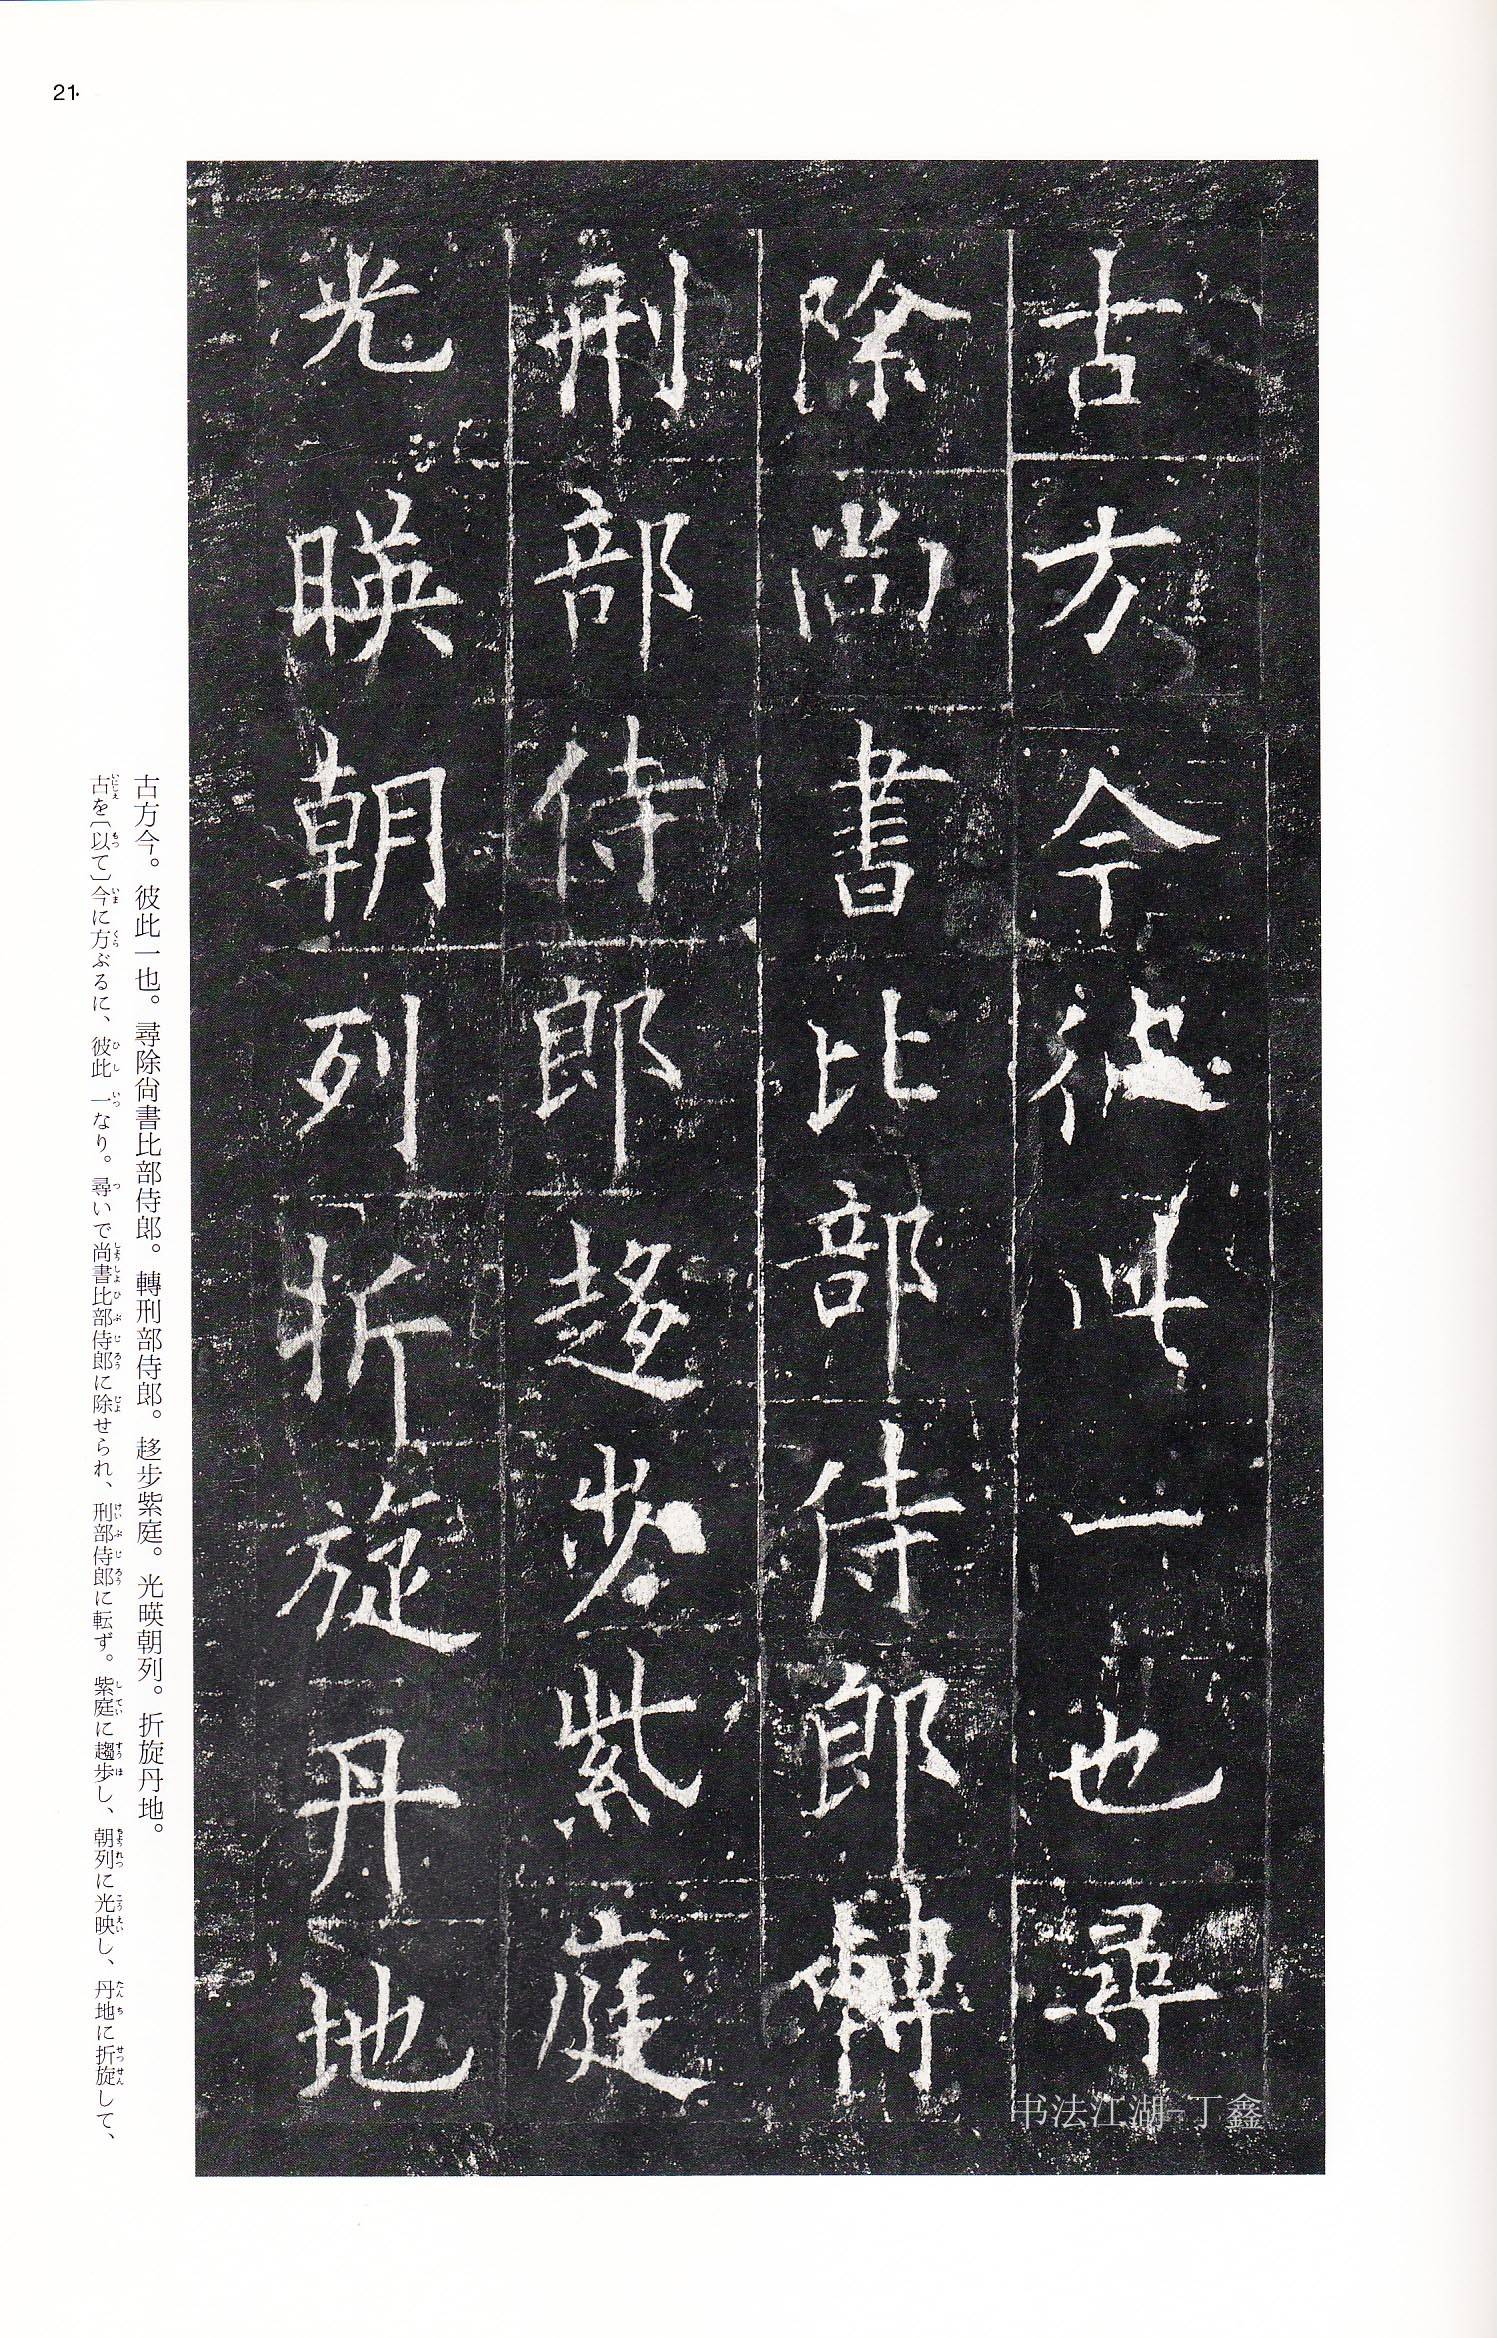 21
古方今彼此一也尋
除尚書比部侍郎轉
刑部侍郎趍步紫庭
光暎朝列折旋丹地
古方今。彼此一也。尋除尙書比部侍郎。轉刑部侍郎。趍步紫庭。光暎朝列。折旋丹地。
古を〔以て〕今に方ぶるに、彼此一なり。尋いで尚書比部侍郎に除せられ、刑部侍郎に転ず。紫庭に趨歩し、朝列に光映し、丹地に折旋して、
书法江湖-丁鑫